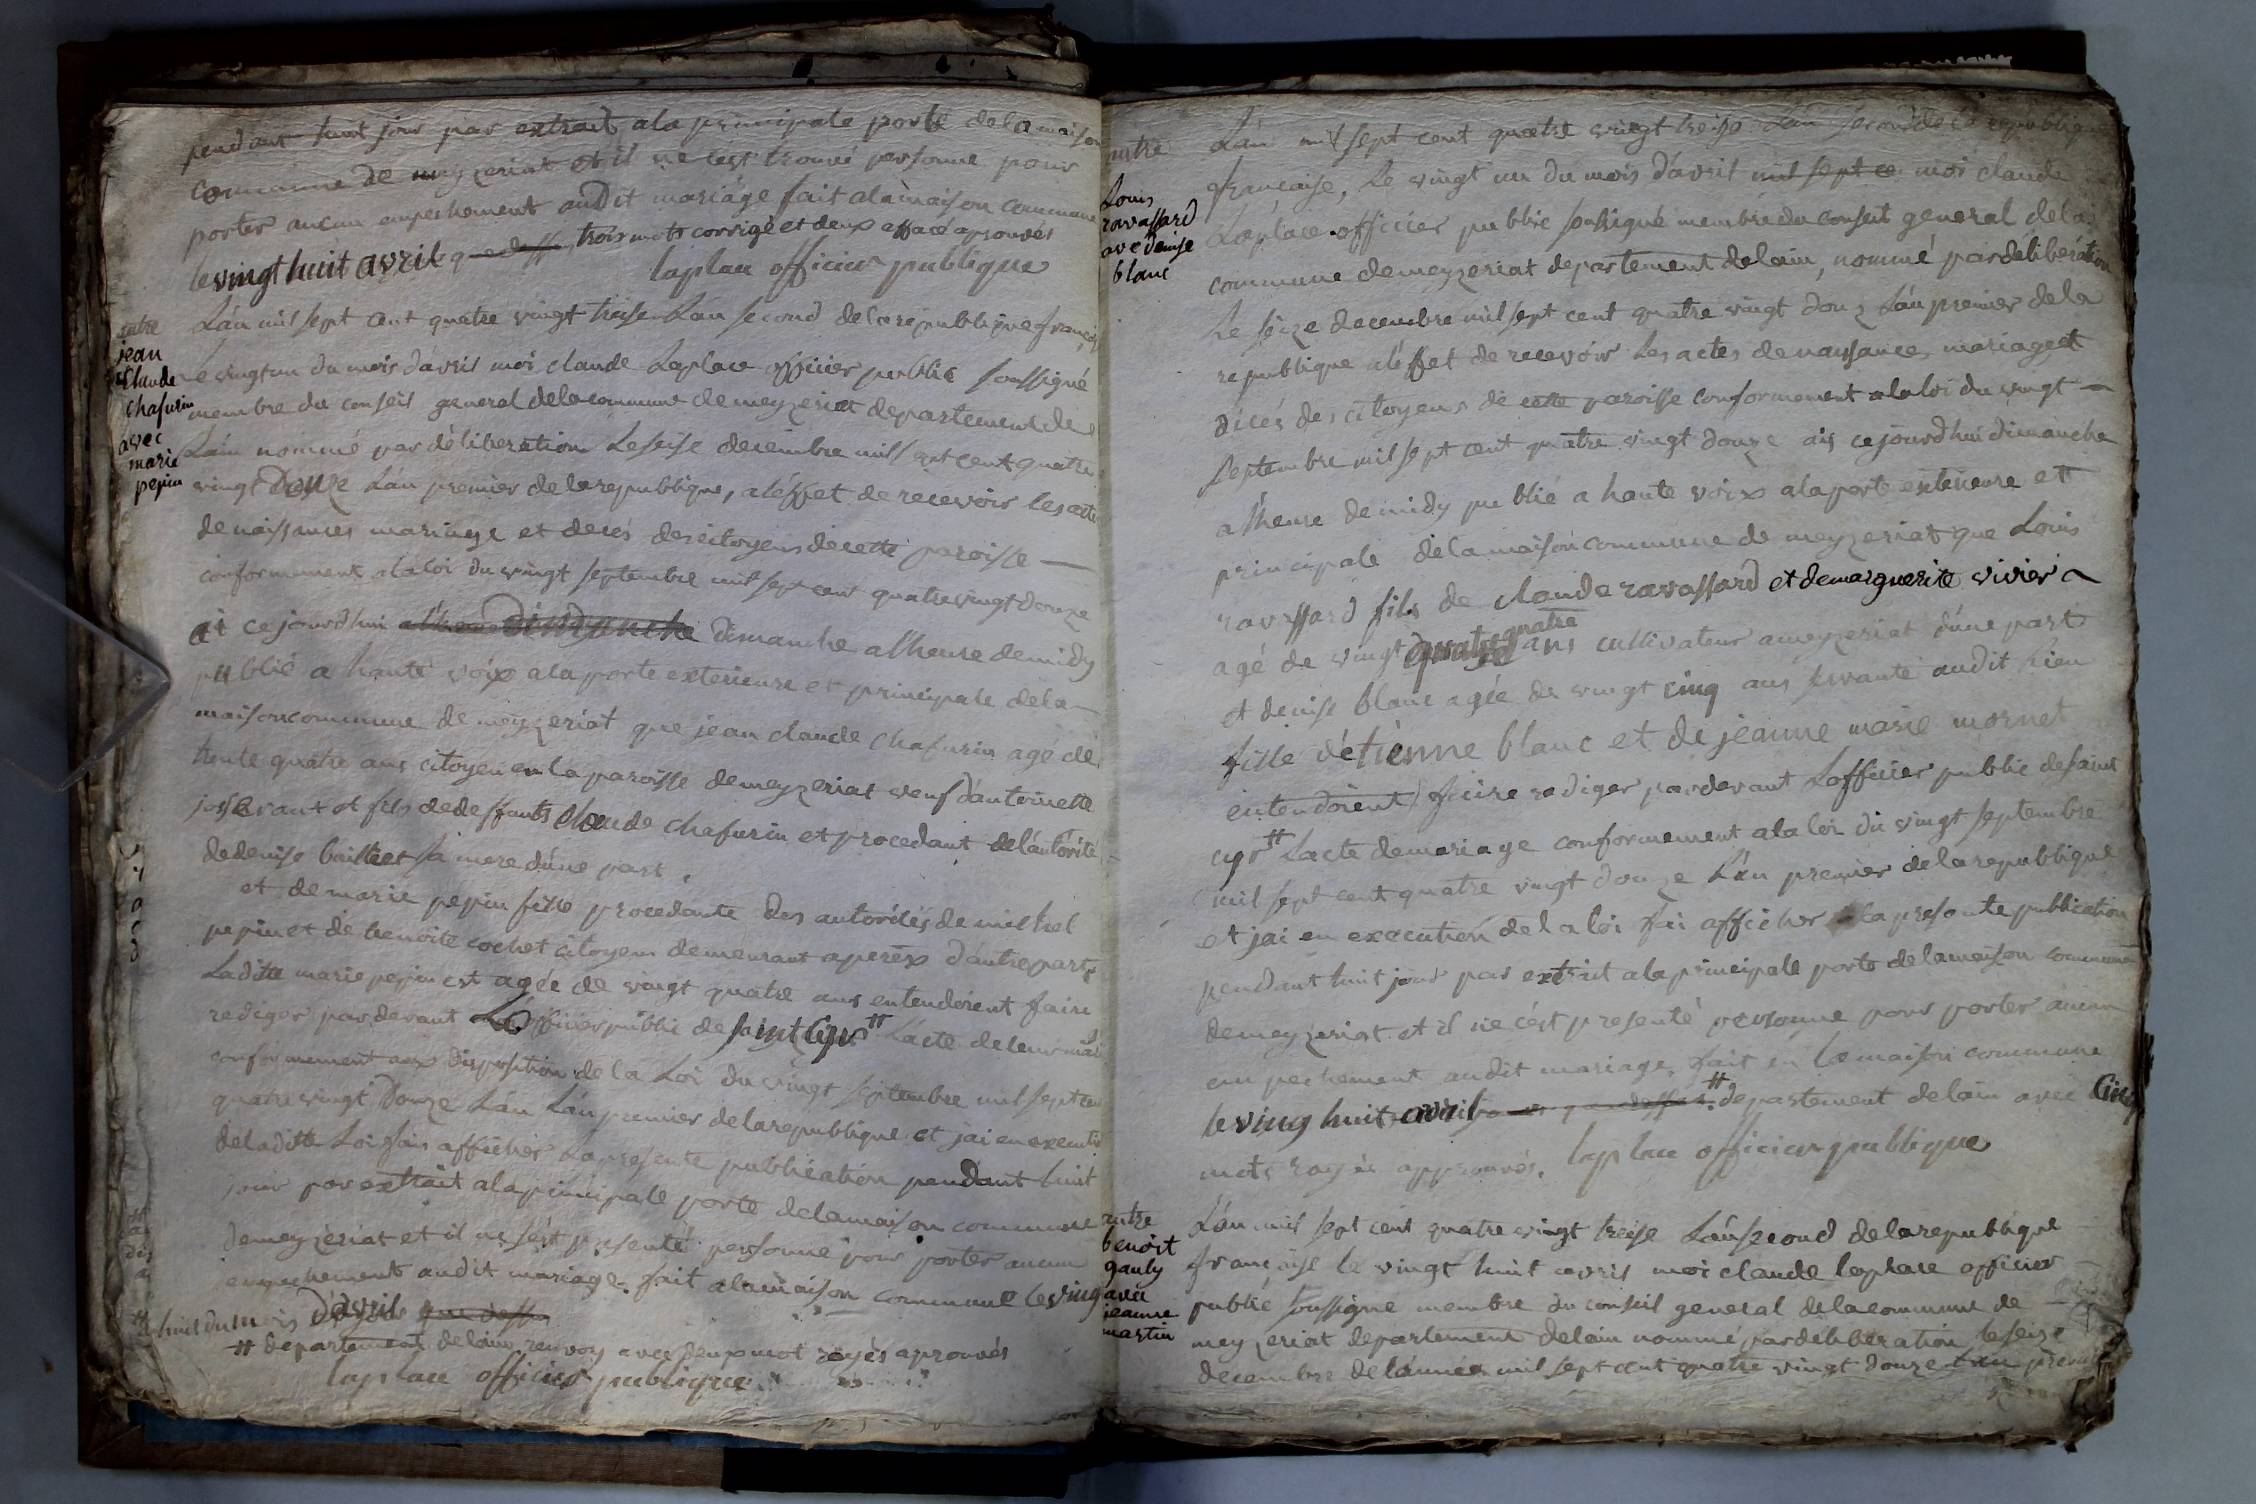 pendant huit jour par extrait ala principale porte dela maison
commune de meyzeriat et il ne cest trouvé personne pour
porter aucun empechement audit mariáge fait alamaison commune
le vingt huit avril que dessu trois mots corrigé et deux effacé aprouvés
laplace officier publique
entre
jean
Claude
chafurin
avec
marie
pepin
Lán mil sept cent quatre vingt treise Lán second dela republique francois
Le vingt un du mois dávril moi claude Laplace officier public soussigné
membre du conseil general dela commune de meyzeriat departement de
Láin nommé par déliberation Le seise decembre mil sept cent quatre
vingt Douze Lán premier dela republique, aléffet de recevoir les acte
de naissances mariage et decés des citoyens de cette paroisse —
conformement ala loi du vingt septembre mil sept cent quatre vingt douze
ai cejourdhui alheure dimanche dimanche alheure demidy
publié a haute voix ala porte exterieure et principale dela —
maison commune de meyzeriat que jean claude chafurin agé de
trente quatre ans citoyen en la paroisse demeyzeriat veuf dántoinette
josserant et fils dedeffunts claude chafurin et procedant delántórité
dedenise sa mere dúne part .
et de marie pepin fille procedante des autorités de michel
pepin et de benoite cochet citoyens demeurant aperex dáutre part
Ladite marie pepin est agée de vingt quatre ans entendoient faire
rediger par devant Lofficier public de saint Cyr # Lácte deleur mai
conformement aux disposition de la Loi du vingt septembre mil sept cen
quatre vingt Douze Lán Lán premier dela republique et jai en executi
deladitte Loi fais afficher Lapresente publication pendant huit
jour par exttait ala principale porte delamaison commune
demeyzériat et il ne sést presenté personne pour porter aucun
empechement audit mariage. fait alamaison commune le ving
# huit du mois dávril que dessu
# departement delain renvoy avec deux mot rayés aprouvés
laplace officier publique
entre
Louis
ravassard
avec denise
blanc
Lán mil sept cent quatre vingt treise Lán second de la republique
française, Le vingt un du mois dávril mil sept ce moi claude
Laplace officier public soussigné membre du conseil general dela
commune demeyzeriat departement delain, nommé par déliberátion
Le séize decembre mil sept cent quatre vingt douz Lán premier dela
republique aléffet de recevoir Les actes de naissances mariage et
décés des citoyens de cette paroisse conformement ala loi du vingt —
septembre mil sept cent quatre vingt douze ais cejourdhui dimanche
alheure demidy publié a haute voix ala porte exterieure et
principale de la maison commune de meyzeriat que Louis
ravassard fils de claude ravassard et de marguerite vivier
quatre
agé de vingt quatre ans cultivateur ameyzeriat dúne part
et denise blanc agée de vingt cinq ans servante audit Lieu
fille détienne blanc et de jeanne marie mornet
entendoient faire rediger pardevant Lofficier public desaint
cyr # Lacte demariage conformement ala loi du vingt septembre
mil sept cent quatre vingt douze Lán premier dela republique
et jai en execution dela loi fai afficher la presente publication
pendant huit jour par extrait ala principale porte delamaison commune
demeyzeriat et il ne cést presenté personne pour porter aucun
empechement audit mariage. fait en la maison commune
le ving huit avril que dessus. # departement delain avec Cinq
mots rayés approuvés. laplace officier publique
entre
benoit
gauly
avec
jeanne
martin
Lán mil sept cent quatre vingt treise Lán second dela republique
française le vingt huit avril moi claude laplace officier —
public soussigné membre du conseil general dela commune de —
meyzeriat departement delain nommé pardeliberation le seize
decembre de lánnée mil sept cent quatre vingt douze Lán premie